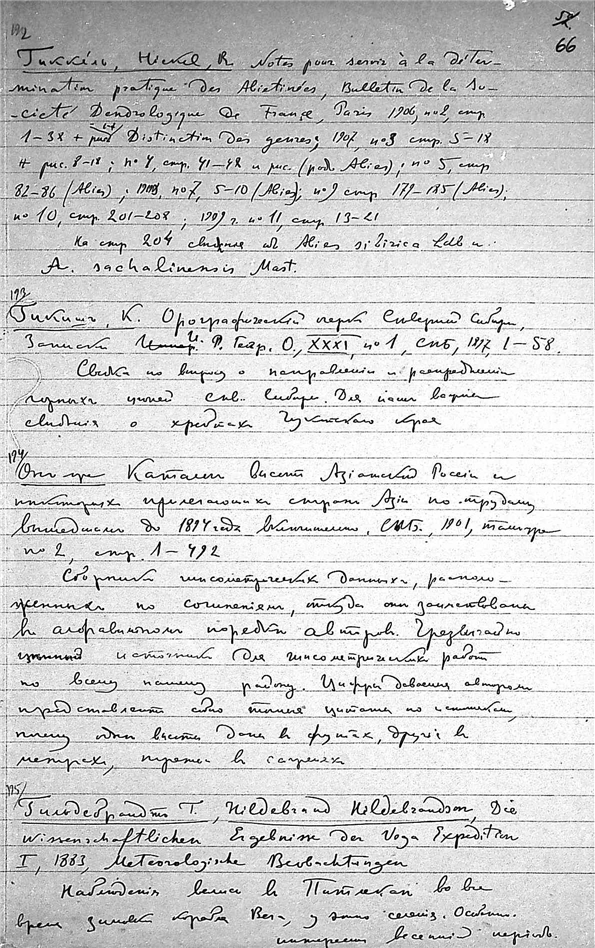 192
52
66
Гиккель, Hickel, R. Notes pour servir à la déter-
mination pratique des Abietinées, Bulletin de la So-
-cieté Dendrologique de France, Paris 1906, no 2, стр
1-38 + Distinction des genres; 1907, no 3 стр. 5-18
+ рис. 8-18; no 4, стр. 41-48 и рис. (род Abies); no 5, стр
82-86 (Abies); 1908, no 7, 5-10 (Abies); no 9 стр 179-185 (Abies);
no 10, стр. 201-208; 1909 г. no 11, стр 13-21
На стр 204 сведения об Abies sibirica Ldb и
A. sachalinensis Mast.
193
Гикиш, К. Орографический очерк Северной Сибири,
Записки И. Р. Геогр. О., XXXI, no 1, СПБ, 1897, 1-58.
Сводка по вопросу о направлении и распределении
горных цепей сев. Сибири. Для нас важны
сведения о хребтах Чукотского края
194
Он же Каталог высот Азиатской России и
некоторых прилегающих стран Азии по трудам
вышедшим до 1894 года включительно, СПБ, 1901,
no 2, стр. 1-492
Сборник гипсометрических данных, располо-
женных по сочинениям, откуда они заимствованы
в алфавитном порядке авторов. Чрезвычайно
ценный источник для гипсометрических работ
по всему нашему району. Цифры даваемые авторами
представляют собою точные цитаты по источникам,
почему одни высоты даны в футах, другие в
метрах, третьи в саженях
195
Гильдебрандт Г., Hildebrand Hildebrandson, Die
wissenschaftlichen Ergebnisse der Vega Expedition
I, 1883, Meteorologische Beobachtungen
Наблюдения велись в Питлекае во все
время зимовки корабля Вега, у этого селения. Особен.
интересен весенний период.